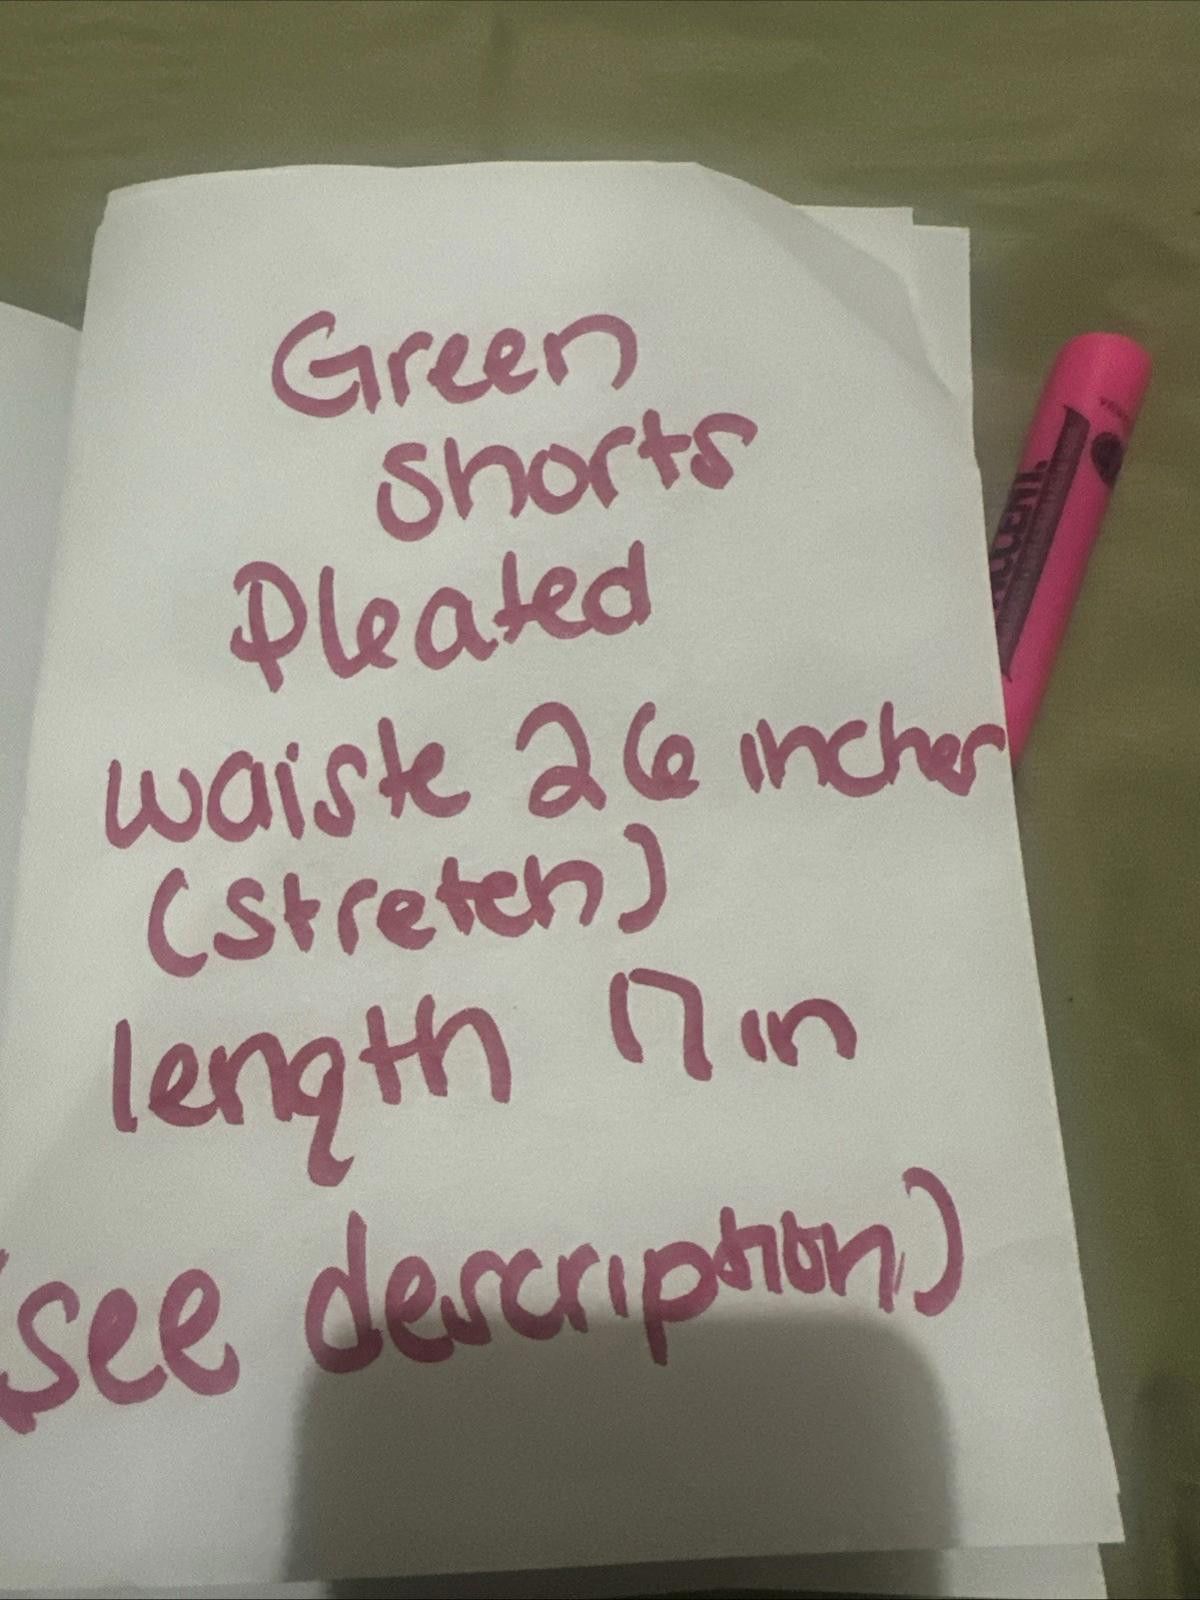 Green
shorts
Pleated
waiste 26 inches
(stretch)
length 17 in
(see description)
ACCENT